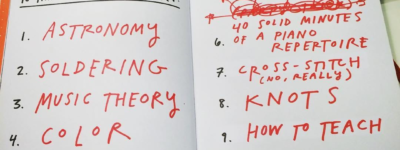 1. ASTRONOMY
2. SOLDERING
3. MUSIC THEORY
4. COLOR
40 SOLID MINUTES
6. OF A PIANO
REPERTOIRE
7. CROSS-STITCH
(NO, REALLY)
8. KNOTS
9. HOW TO TEACH